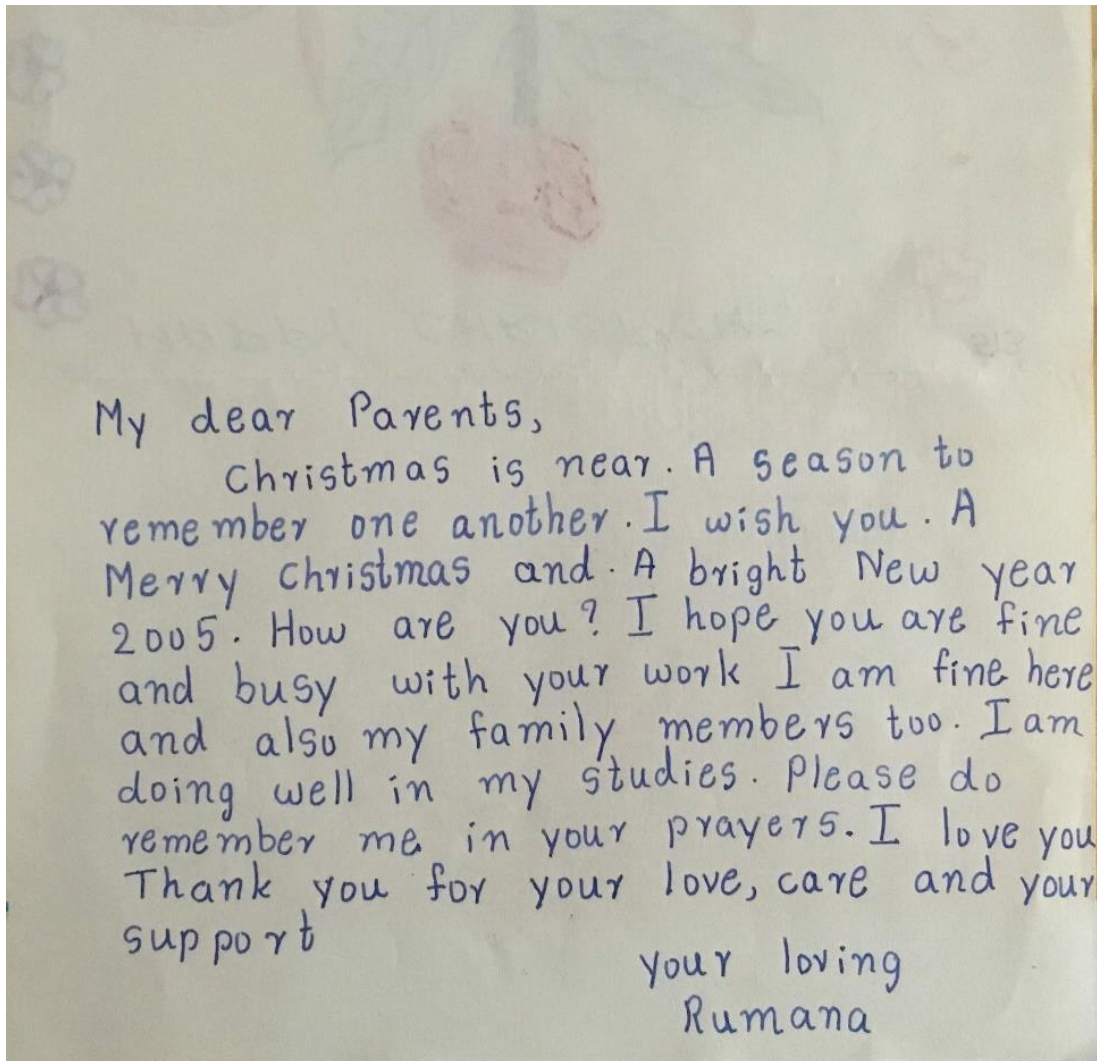 My dear Parents,
Christmas is near. A season to
remember one another. I wish you. A
Merry Christmas and. A bright New year
2005. How are you? I hope you are fine
and busy with your work I am fine here
and also my family members too. I am
doing well in my studies. Please do
remember me in your prayers. I love you
Thank you for your love, care and your
support
your loving
Rumana